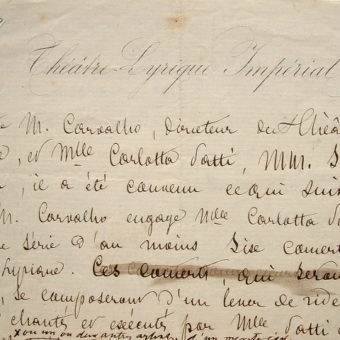 Théâtre-Lyrique Impérial
M. Carvalho, directeur du Théâ
et Mlle Carlotta Patti, MM. S
, il a été convenu ce qui suit
M. Carvalho engage Mlle Carlotta
série d'au moins Dise concert
Lyrique. Ces concerts, qui seron
, se composeront d'un lever de ride
chantés et exécutés par Mlle Patti
x ou un ou deux autres artistes